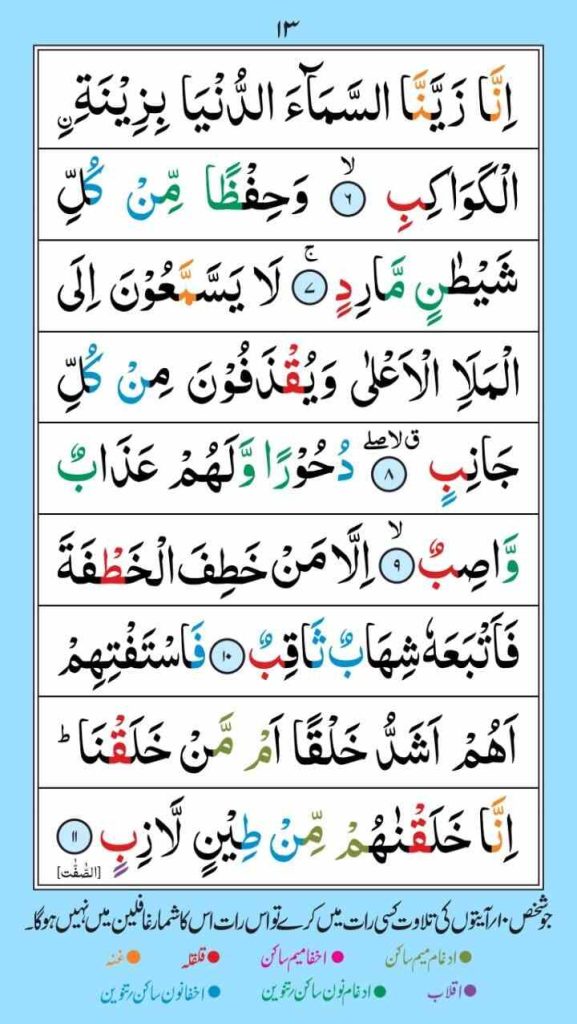 ۱۳
اِنَّا زَيَّنَّا السَّمَآءَ الدُّنْيَا بِزِيْنَةِ ۨ
الْكَوَاكِبِ ۙ﴿۶﴾ وَحِفْظًا مِّنْ كُلِّ
شَيْطٰنٍ مَّارِدٍ ۚ﴿۷﴾ لَا يَسَّمَّعُوْنَ اِلَى
الْمَلَاِ الْاَعْلٰى وَيُقْذَفُوْنَ مِنْ كُلِّ
جَانِبٍ ق لا صلے ﴿۸﴾ دُحُوْرًا وَّلَهُمْ عَذَابٌ
وَّاصِبٌ ۙ﴿۹﴾ اِلَّا مَنْ خَطِفَ الْخَطْفَةَ
فَاَتْبَعَهٗ شِهَابٌ ثَاقِبٌ ﴿۱۰﴾ فَاسْتَفْتِهِمْ
اَهُمْ اَشَدُّ خَلْقًا اَمْ مَّنْ خَلَقْنَا ؕ
اِنَّا خَلَقْنٰهُمْ مِّنْ طِيْنٍ لَّازِبٍ ﴿۱۱﴾
[الصّٰفّٰت]
جو شخص ۱۰/آیتوں کی تلاوت کسی رات میں کرے تو اس رات اس کا شمار غافلین میں نہیں ہوگا۔
ادغام میم ساکن اخفا میم ساکن قلقلہ غنہ
اقلاب ادغام نون ساکن/تنوین اخفا نون ساکن/تنوین